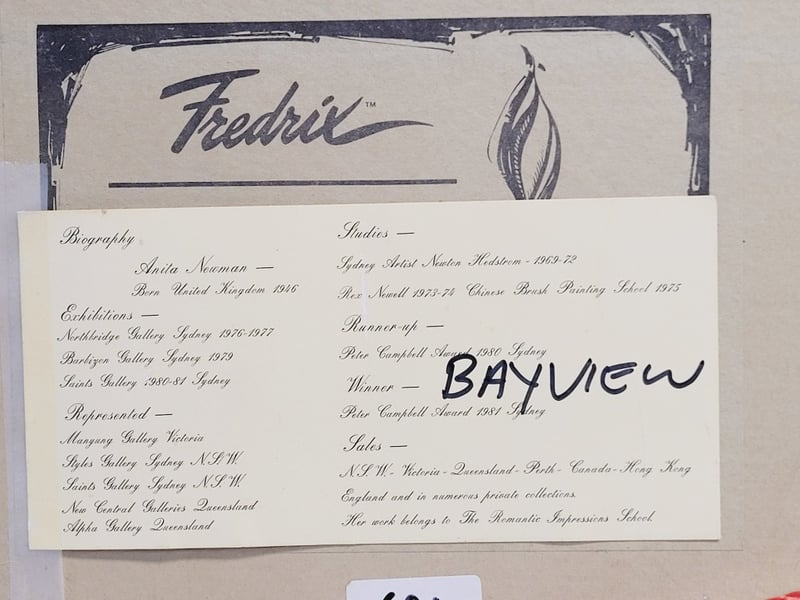 Fredrix™
Biography
Anita Newman —
Born United Kingdom 1946
Exhibitions —
Northbridge Gallery Sydney 1976-1977
Barbizon Gallery Sydney 1979
Saints Gallery 1980-81 Sydney
Represented —
Manyung Gallery Victoria
Styles Gallery Sydney N.S.W.
Saints Gallery Sydney N.S.W.
New Central Galleries Queensland
Alpha Gallery Queensland
Studies —
Sydney Artist Newton Hedstrom - 1969-72
Rex Newell 1973-74 Chinese Brush Painting School 1975
Runner-up —
Peter Campbell Award 1980 Sydney
Winner —
BAYVIEW
Peter Campbell Award 1981 Sydney
Sales —
N.S.W. - Victoria - Queensland - Perth - Canada - Hong Kong
England and in numerous private collections.
Her work belongs to The Romantic Impressions School.